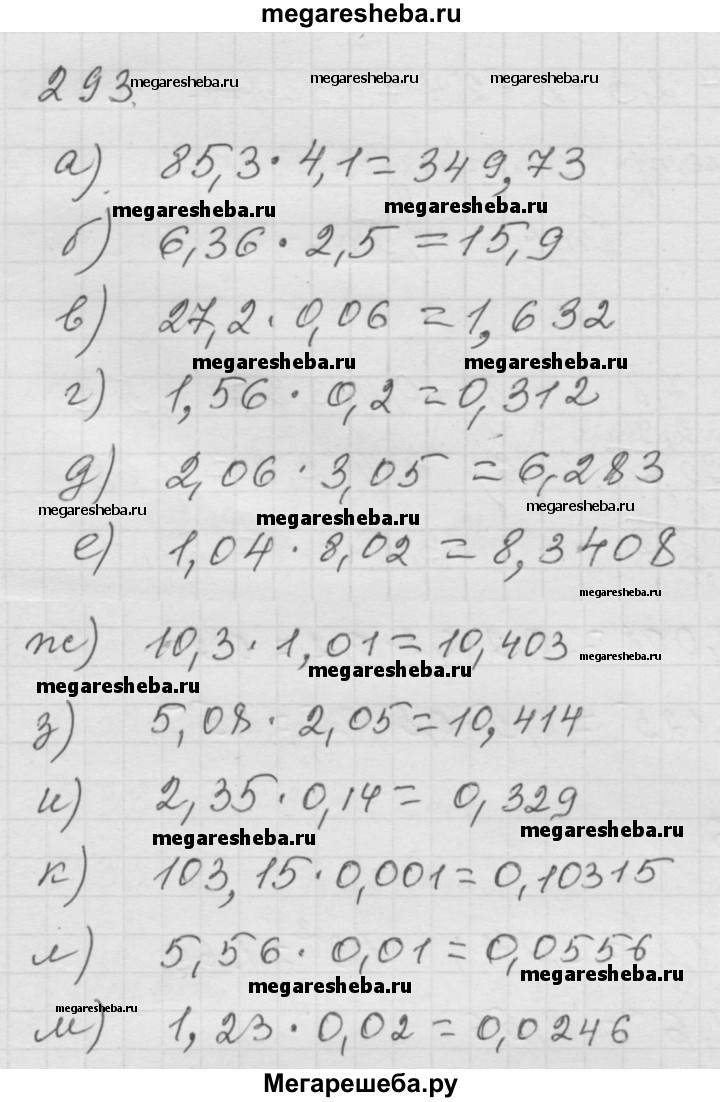 megaresheba.ru
293. megaresheba.ru megaresheba.ru megaresheba.ru
а) 85,3 · 4,1 = 349,73
megaresheba.ru megaresheba.ru
б) 6,36 · 2,5 = 15,9
в) 27,2 · 0,06 = 1,632
megaresheba.ru megaresheba.ru
г) 1,56 · 0,2 = 0,312
д) 2,06 · 3,05 = 6,283
megaresheba.ru megaresheba.ru megaresheba.ru
е) 1,04 · 8,02 = 8,3408
megaresheba.ru
ж) 10,3 · 1,01 = 10,403
megaresheba.ru megaresheba.ru megaresheba.ru
з) 5,08 · 2,05 = 10,414
и) 2,35 · 0,14 = 0,329
megaresheba.ru megaresheba.ru
к) 103,15 · 0,001 = 0,10315
л) 5,56 · 0,01 = 0,0556
megaresheba.ru megaresheba.ru
megaresheba.ru
м) 1,23 · 0,02 = 0,0246
Мегарешеба.ру